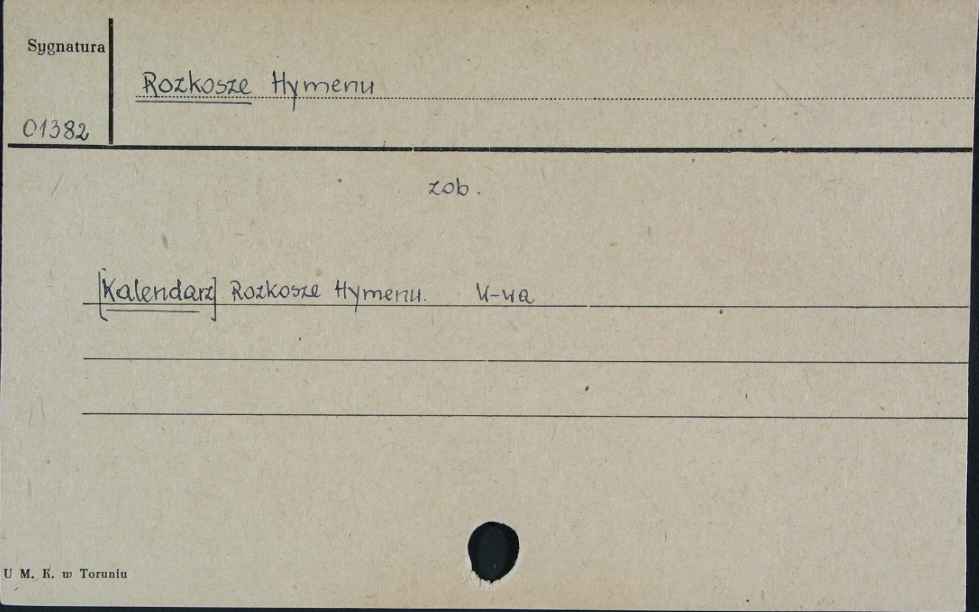 Sygnatura
Rozkosze Hymenu
01382
zob.
[Kalendarz] Rozkosze Hymenu. W-wa
U M. K. w Toruniu